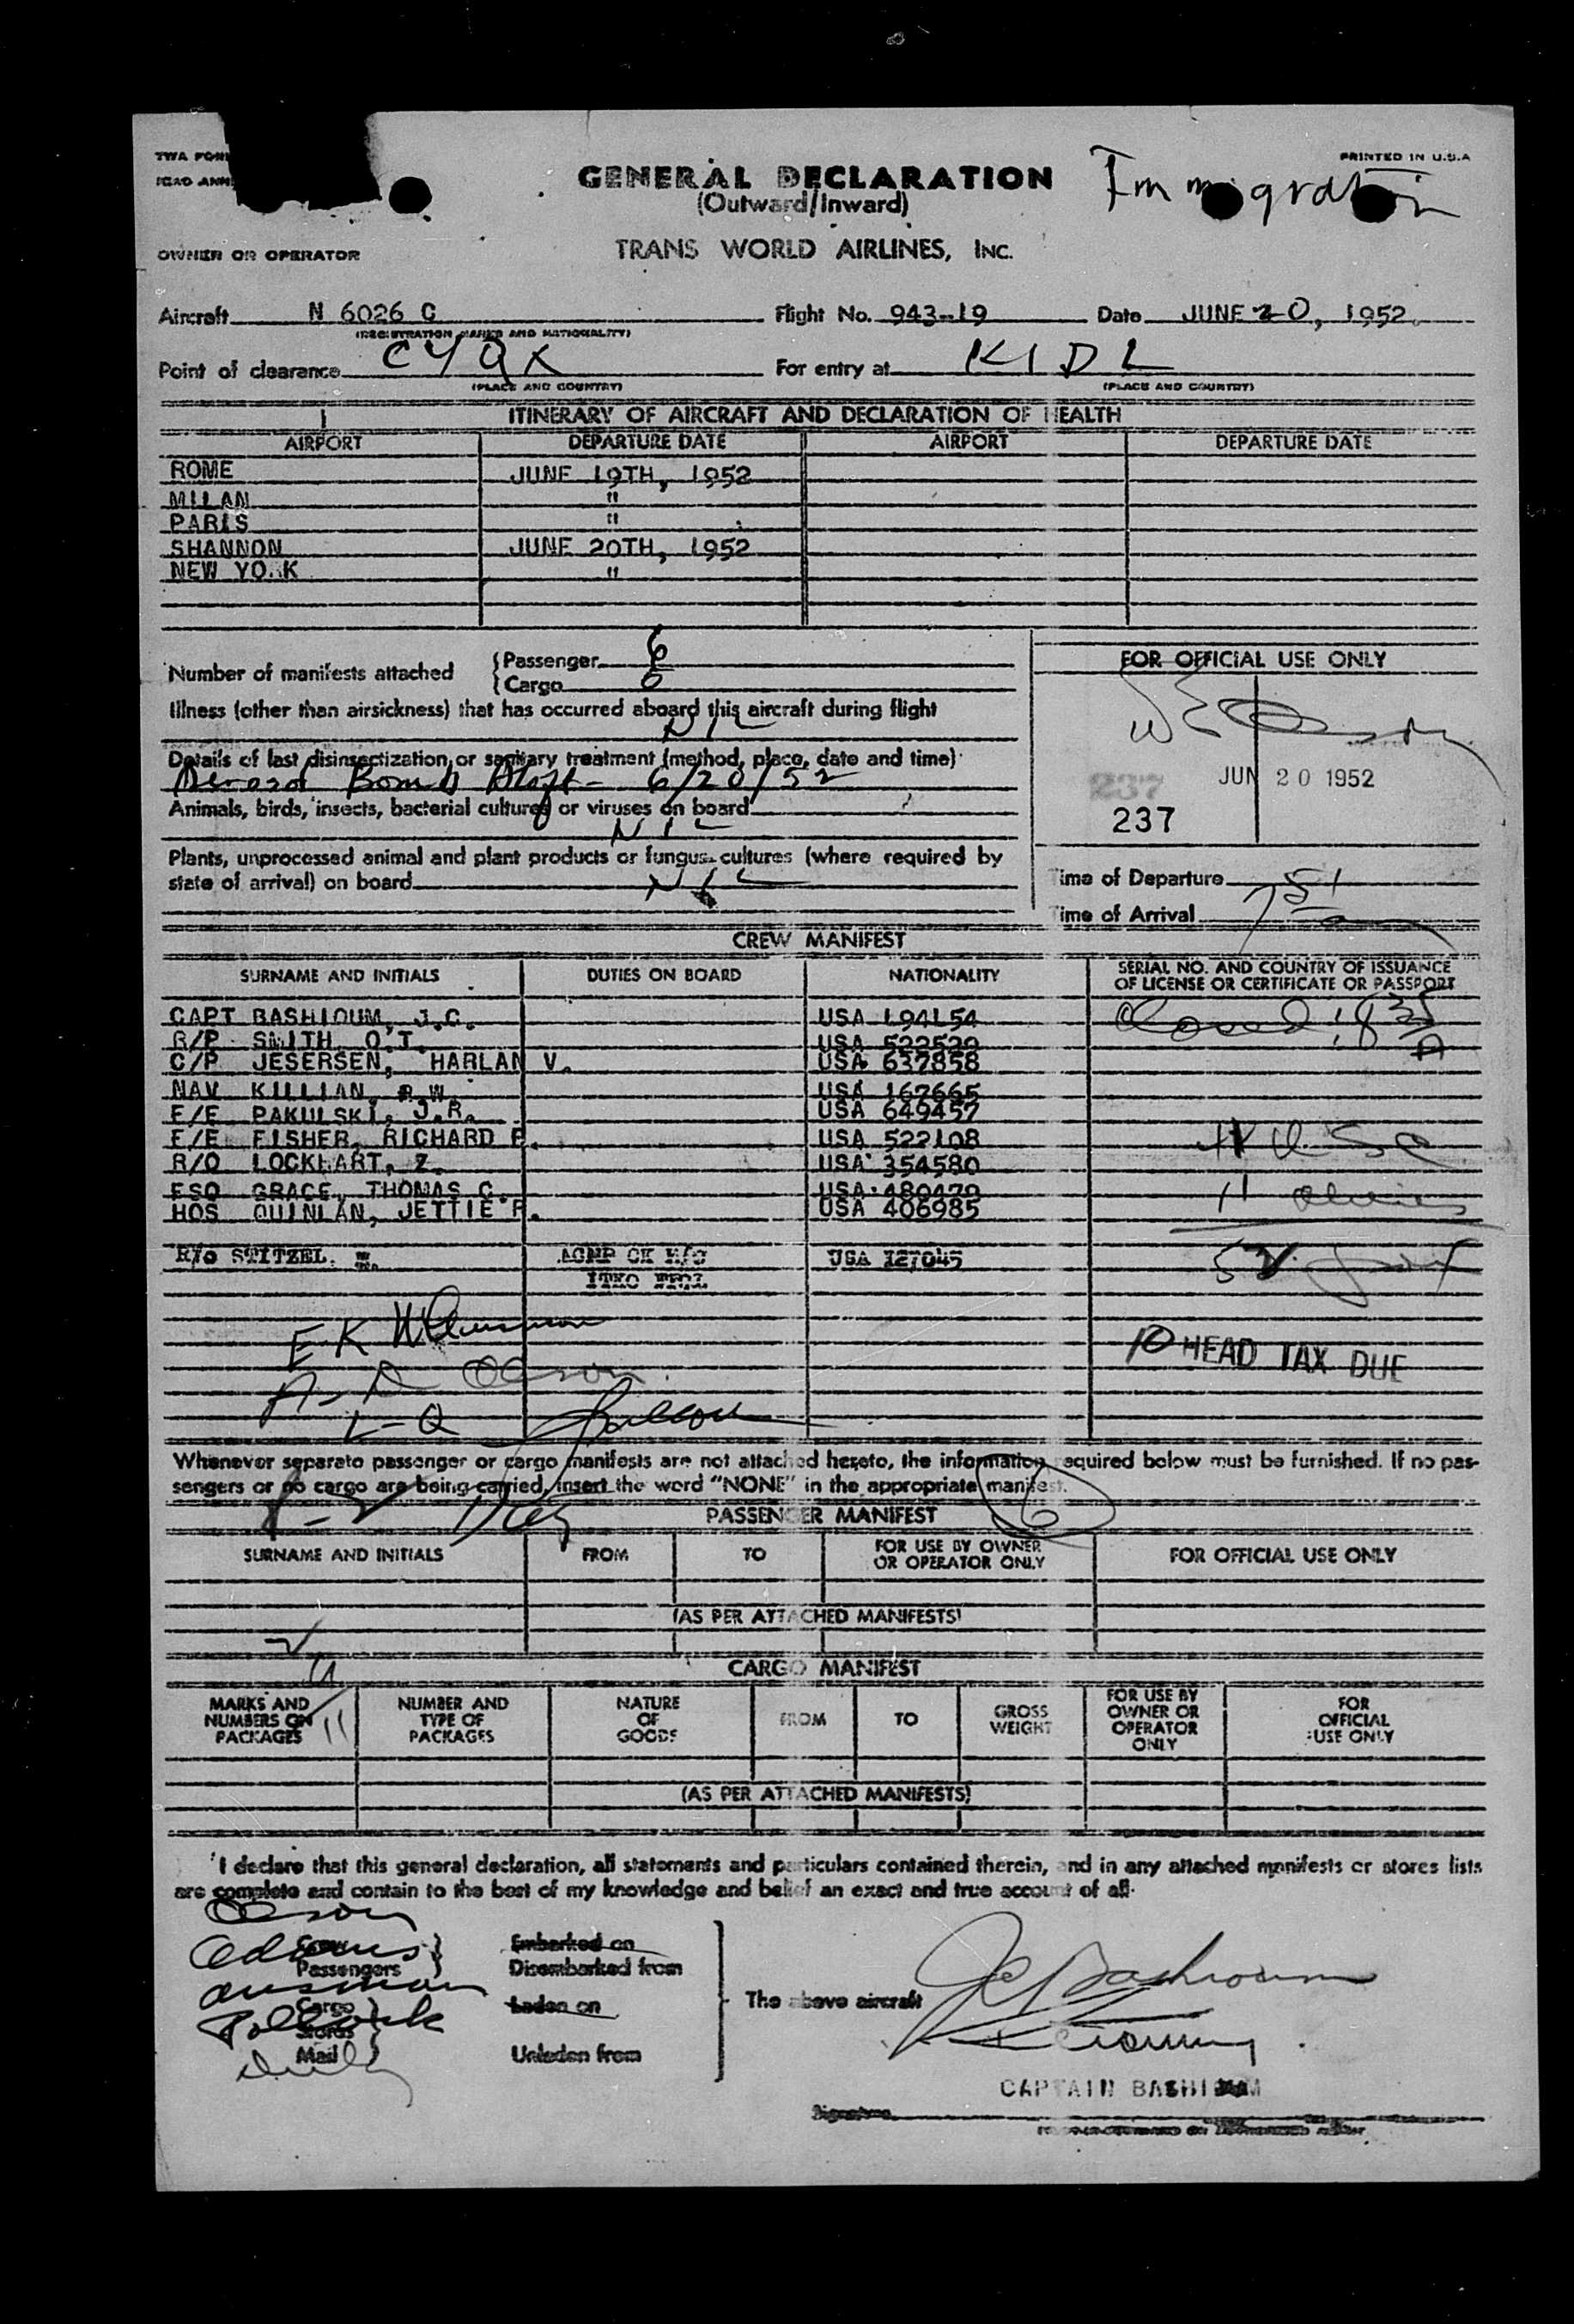 TWA FORM
ICAO ANN
PRINTED IN U.S.A
GENERAL DECLARATION
Immigration
(Outward/Inward)
OWNER OR OPERATOR
TRANS WORLD AIRLINES, INC.
Aircraft N 6026 C Flight No. 943-19 Date JUNE 20, 1952
(REGISTRATION MARKS AND NATIONALITY)
Point of clearance CYQX For entry at KIDL
(PLACE AND COUNTRY) (PLACE AND COUNTRY)
ITINERARY OF AIRCRAFT AND DECLARATION OF HEALTH
AIRPORT DEPARTURE DATE AIRPORT DEPARTURE DATE
ROME JUNE 19TH, 1952
MILAN "
PARIS "
SHANNON JUNE 20TH, 1952
NEW YORK "
Number of manifests attached
Passenger 6
Cargo 6
FOR OFFICIAL USE ONLY
Illness (other than airsickness) that has occurred aboard this aircraft during flight
NIL
Details of last disinsectization or sanitary treatment (method, place, date and time)
Aerosol Bomb 6/20/52
JUN 20 1952
237
237
Animals, birds, insects, bacterial cultures or viruses on board
NIL
Plants, unprocessed animal and plant products or fungus cultures (where required by
state of arrival) on board NIL
Time of Departure
Time of Arrival
CREW MANIFEST
SURNAME AND INITIALS DUTIES ON BOARD NATIONALITY SERIAL NO. AND COUNTRY OF ISSUANCE OF LICENSE OR CERTIFICATE OR PASSPORT
CAPT BASHIOUM, J.C. USA 194154
R/P SMITH O.T. USA 522529
C/P JESERSEN, HARLAN V. USA 637858
NAV KILLIAN, R.W. USA 167665
F/E PAKULSKI, J.R. USA 649457
F/E FISHER, RICHARD E. USA 522108
R/O LOCKHART, Z. USA 354580
FSO GRACE, THOMAS C. USA 480479
HOS QUINLAN, JETTIE F. USA 406985
R/o STITZEL. USA 127045
10 HEAD TAX DUE
Whenever separate passenger or cargo manifests are not attached hereto, the information required below must be furnished. If no pas-
sengers or no cargo are being carried, insert the word "NONE" in the appropriate manifest.
6
PASSENGER MANIFEST
SURNAME AND INITIALS FROM TO FOR USE BY OWNER OR OPERATOR ONLY FOR OFFICIAL USE ONLY
(AS PER ATTACHED MANIFESTS)
CARGO MANIFEST
MARKS AND NUMBERS ON PACKAGES NUMBER AND TYPE OF PACKAGES NATURE OF GOODS FROM TO GROSS WEIGHT FOR USE BY OWNER OR OPERATOR ONLY FOR OFFICIAL USE ONLY
(AS PER ATTACHED MANIFESTS)
I declare that this general declaration, all statements and particulars contained therein, and in any attached manifests or stores lists
are complete and contain to the best of my knowledge and belief an exact and true account of all
Olson
Crew Embarked on
Adams
Passengers Disembarked from
Cargo Laden on
The above aircraft
Pollock
Stores
Mail Unladen from
CAPTAIN BASHIOUM
Signature